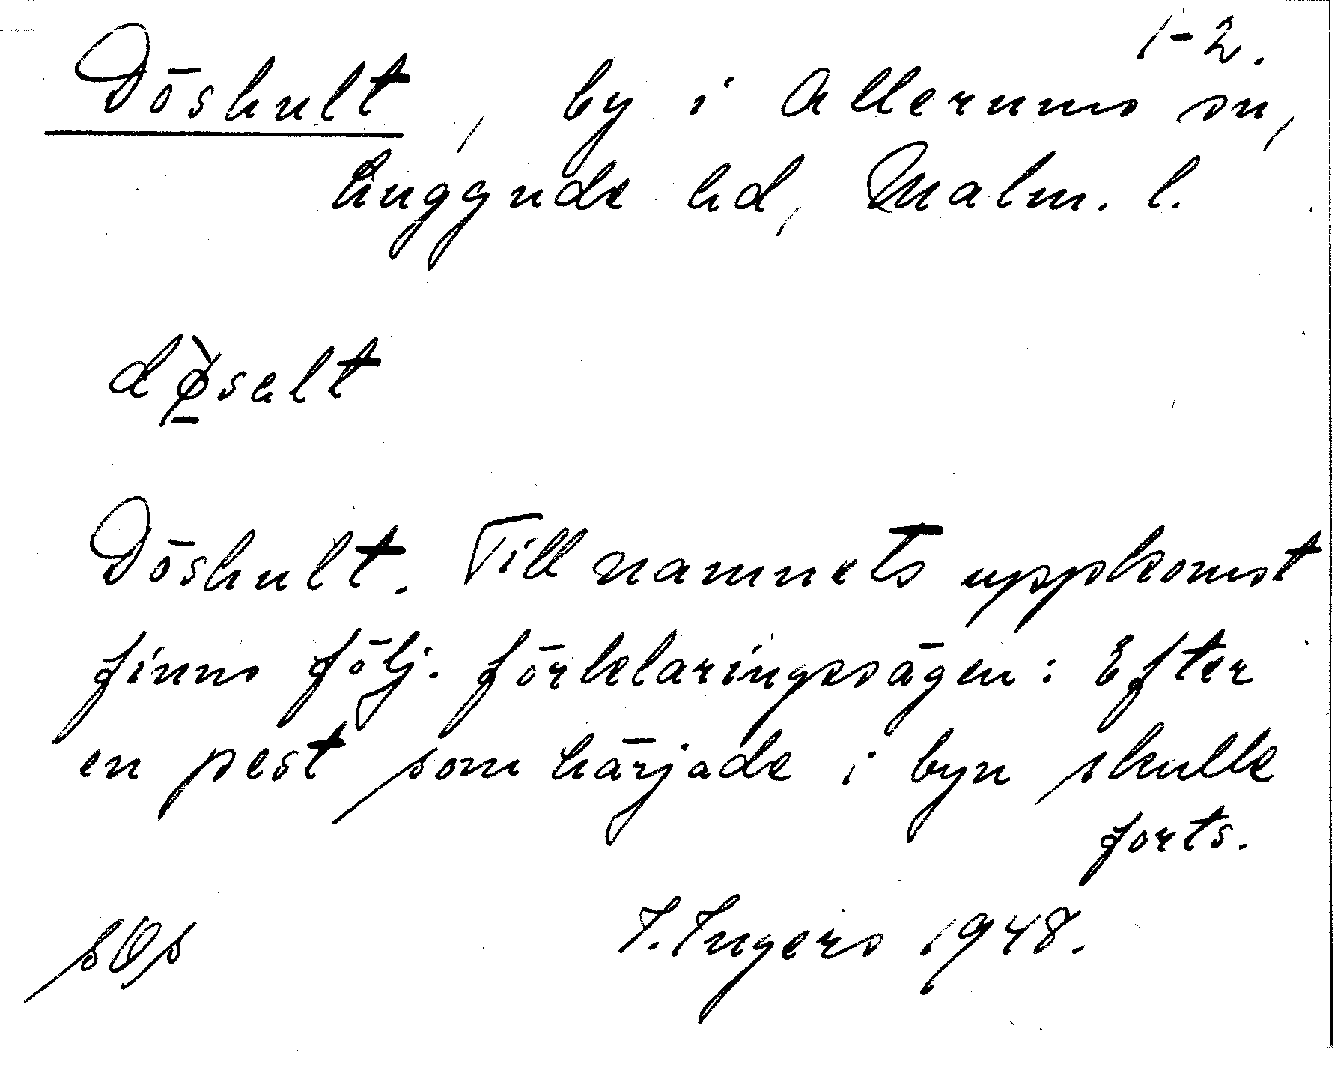 1-2.
Döshult, by i Allerums sn,
Luggude hd, Malm. l.
dø̱̀salt
Döshult. Till namnets uppkomst
finns följ. förklaringssägen: Efter
en pest som härjade i byn skulle
forts.
I. Ingers 1948.